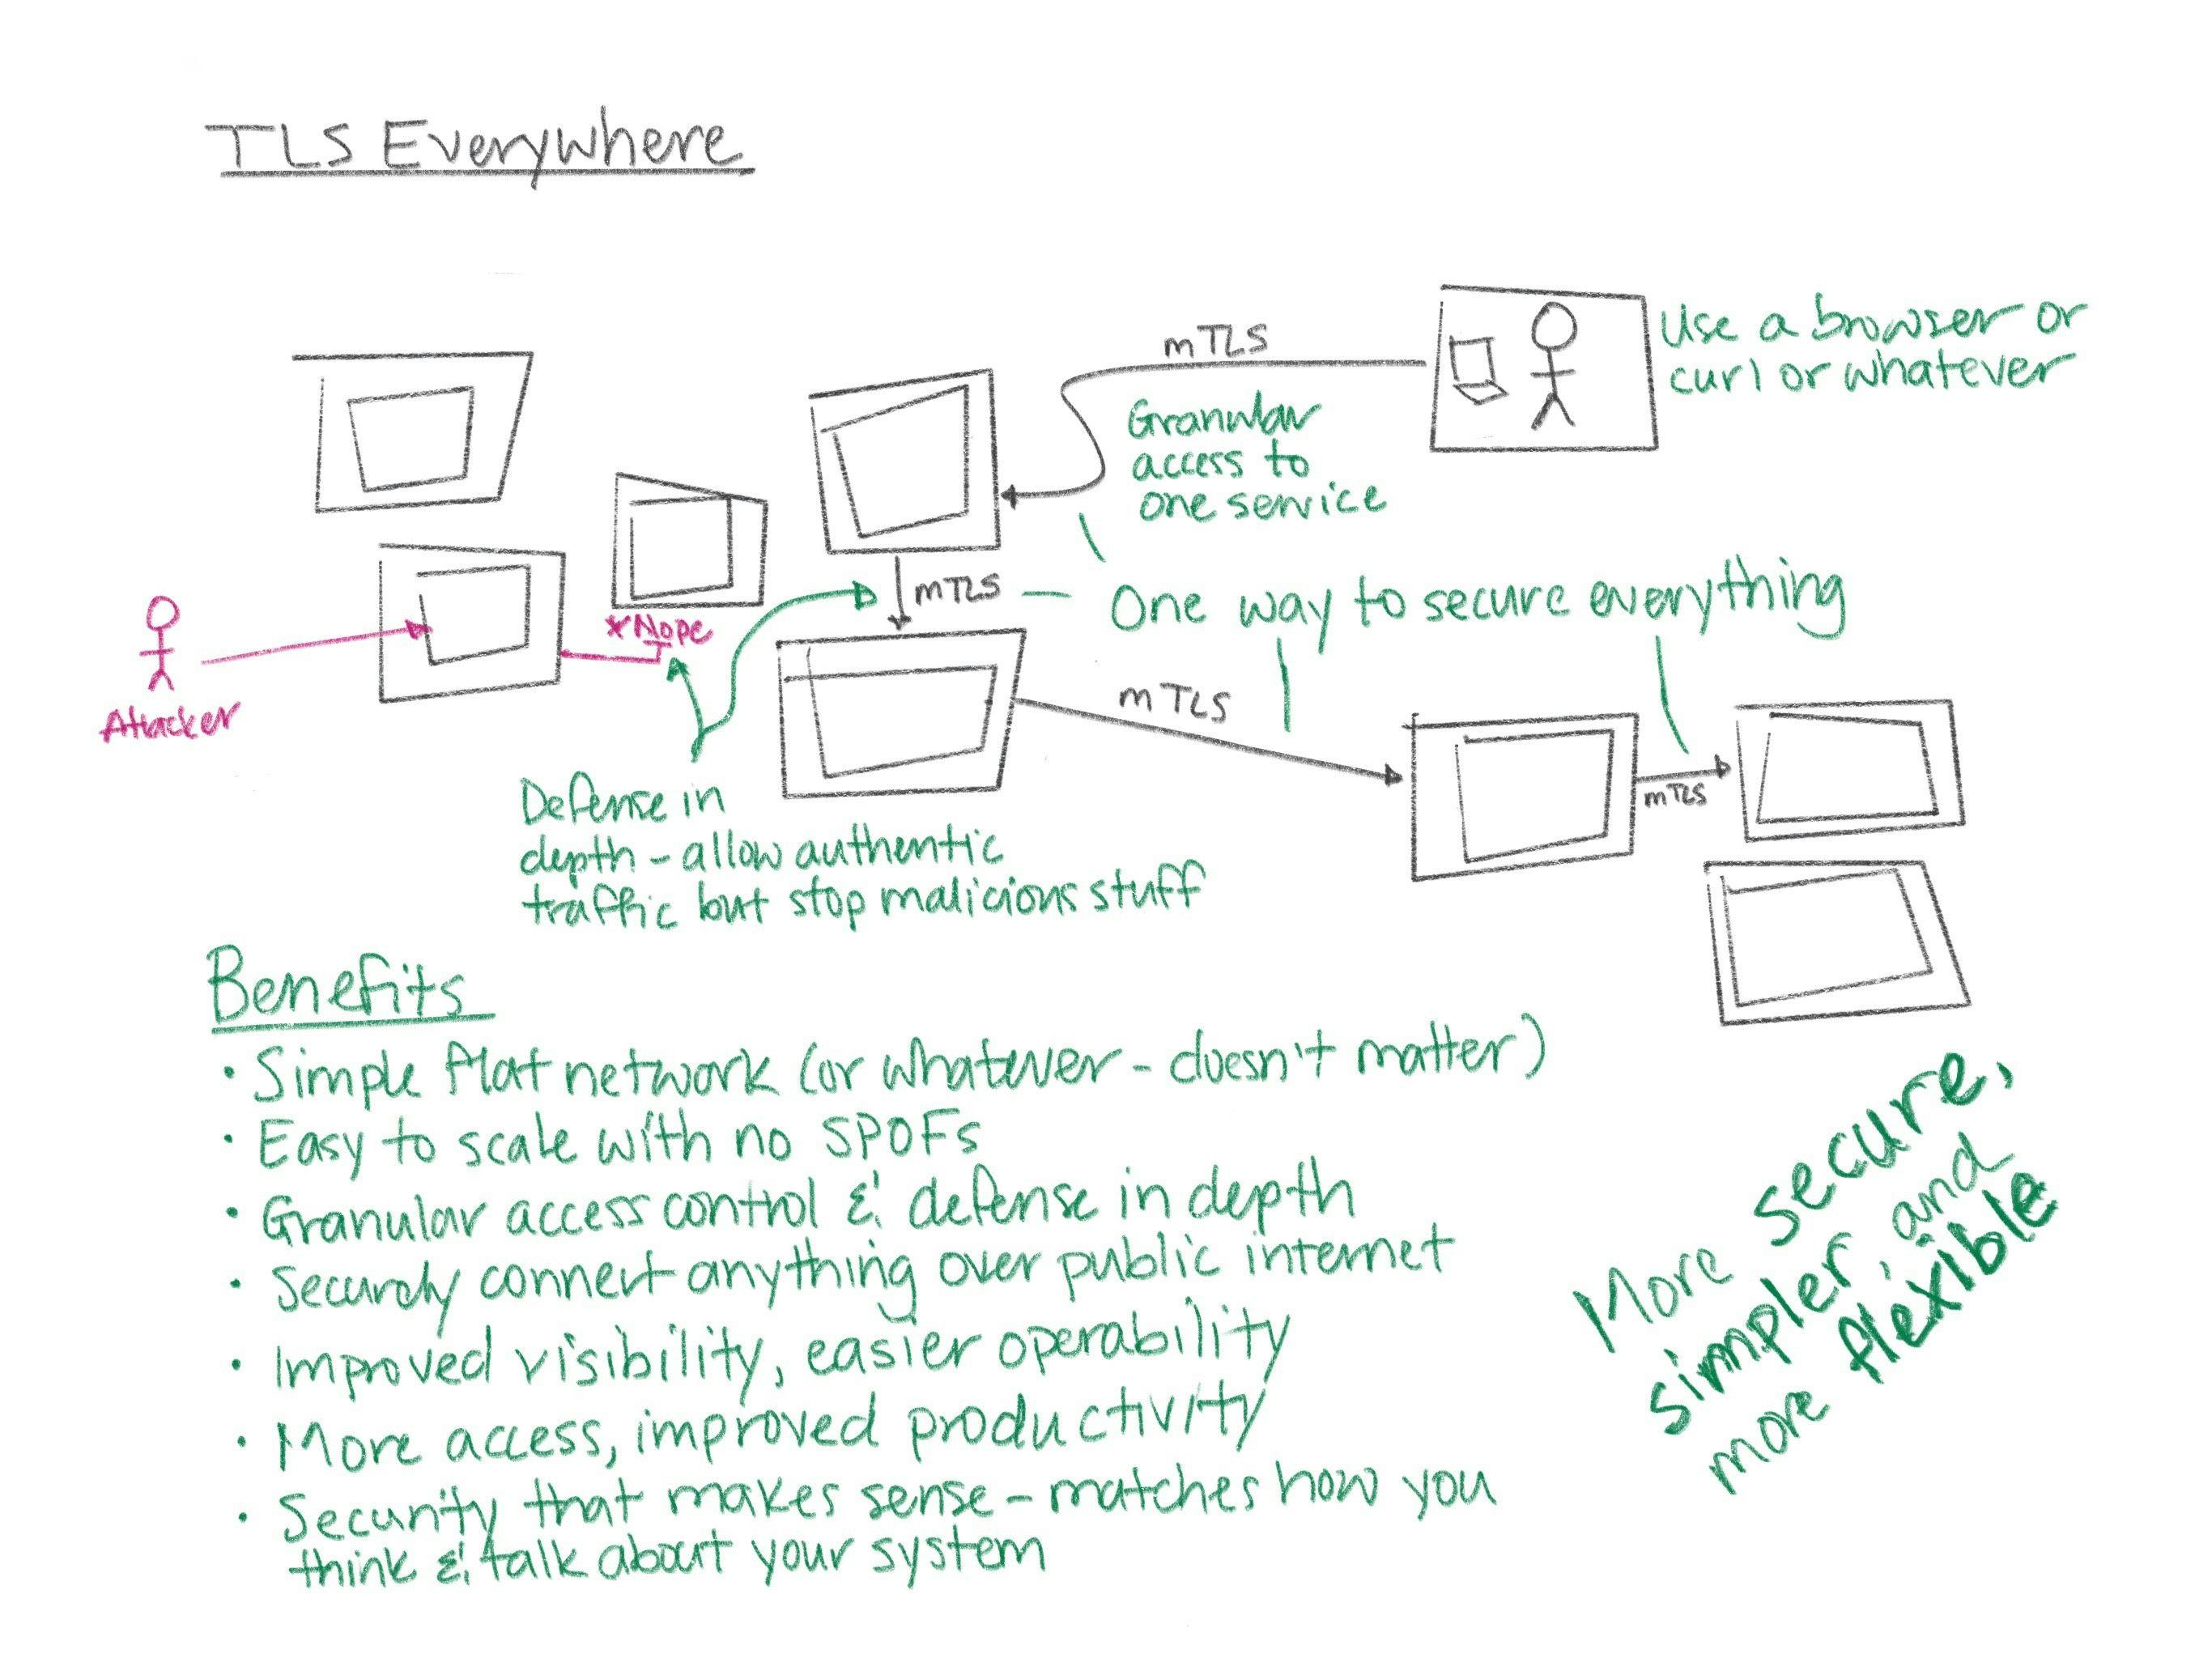 TLS Everywhere
mTLS
Use a browser or
curl or whatever
Granular
access to
one service
mTLS
One way to secure everything
*Nope
Attacker
mTLS
mTLS
Defense in
depth - allow authentic
traffic but stop malicious stuff
Benefits
• Simple flat network (or whatever - doesn't matter)
• Easy to scale with no SPOFs
• Granular access control & defense in depth
• Securely connect anything over public internet
• Improved visibility, easier operability
• More access, improved productivity
• Security that makes sense - matches how you
think & talk about your system
More secure,
simpler, and
more flexible